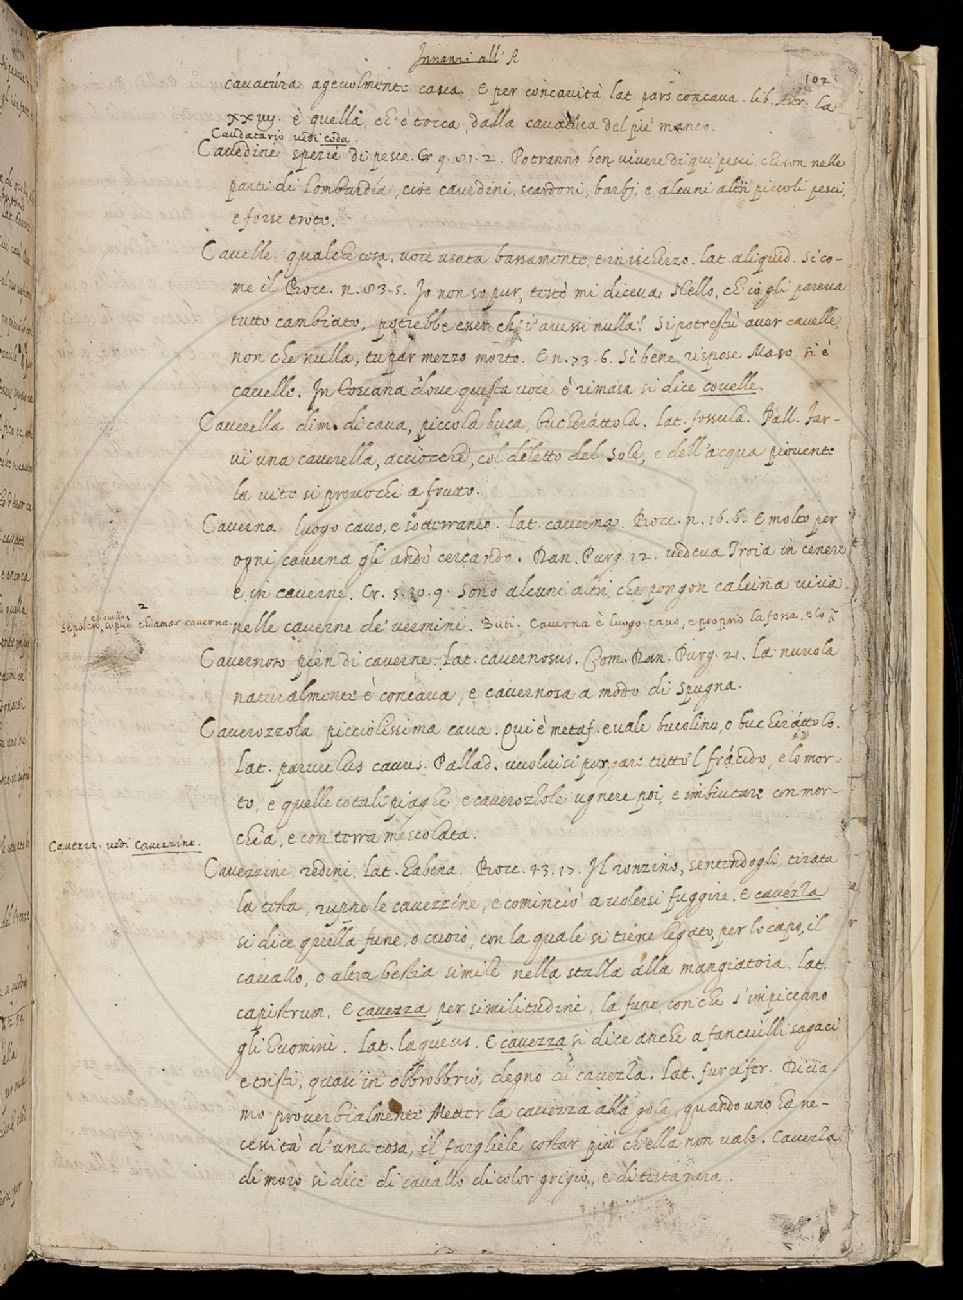 Innanzi all' A
102
cavatura agevolmente casca. E per concavità lat. pars concava. lib. Astr. la
xxvij. è quella, ch'è tocca dalla cavatura del piè manco.
Caudatario vedi coda.
Cavedine spezie di pesce. Cr. 9. 81. 2. Potranno ben vivere di que' pesci, che son nelle
parti di Lombardia, cioè cavedini, scardoni, barbj, e alcuni altri piccoli pesci,
e forse trote.
Cavelle. qualche cosa, voce usata bassamente, e in ischerzo. lat. aliquid. Sì co-
me il Bocc. n. 83. 5. Io non so pur, testè mi diceva Nello, ch'io gli pareva
tutto cambiato, potrebbe esser ch'i' avessi nulla? Si potrestù aver cavelle,
non che nulla, tu par mezzo morto. E n. 73. 6. Sì bene, rispose Maso, sì è
cavelle. In Toscana dove questa voce è rimasa si dice covelle.
Caverella dim. di cava, piccola buca, bucherattola. lat. fossula. Pall. Far-
vi una caverella, acciocchè, col diletto del Sole, e dell'acqua piovente
la vite si provochi a frutto.
Caverna luogo cavo, e sotterraneo. lat. caverna. Bocc. n. 16. 6. E molto per
ogni caverna gli andò cercando. Dan. Purg. 12. vedeva Troia in cenere
e in caverne. Cr. 5. 20. 9. Sono alcuni altri, che pongon calcina viva
nelle caverne de' vermini. Buti. Caverna è luogo cavo, e proprio la fossa, e lo
sepulcro, si può chiamar caverna.
Cavernoso pien di caverne. lat. cavernosus. Com. Dan. Purg. 21. la nuvola
naturalmente è concava, e cavernosa a modo di spugna.
Caverozzola picciolissima cava. Qui è metaf. e vale bucolino, o bucherattolo.
lat. parvulus cavus. Pallad. vuolvisi purgare tutto 'l fracido, e lo mor-
to, e quelle cotali piaghe, e caverozzole ugnere poi, e imbiutare con mor-
chia, e con terra mescolata.
Cavezza. vedi Cavezzine.
Cavezzine redini. lat. habena. Bocc. 43. 17. Il ronzino, sentendogli tirata
la testa, ruppe le cavezzine, e cominciò a volersi fuggire. E cavezza
si dice quella fune, o cuoio, con la quale si tiene legato, per lo capo, il
cavallo, o altra bestia simile nella stalla alla mangiatoia. lat.
capistrum. E cavezza per similitudine, la fune, con che s'impiccano
gli huomini. lat. laqueus. E cavezza si dice anche a fanciulli sagaci
e tristi, quasi in obbrobbrio, degno di cavezza. lat. furcifer. Dicia-
mo proverbialmente Metter la cavezza alla gola, quando uno ha ne-
cessità d'una cosa, il fargliele costar più ch'ella non vale. Cavezza
di moro si dice di cavallo di color grigio, e di testa nera.